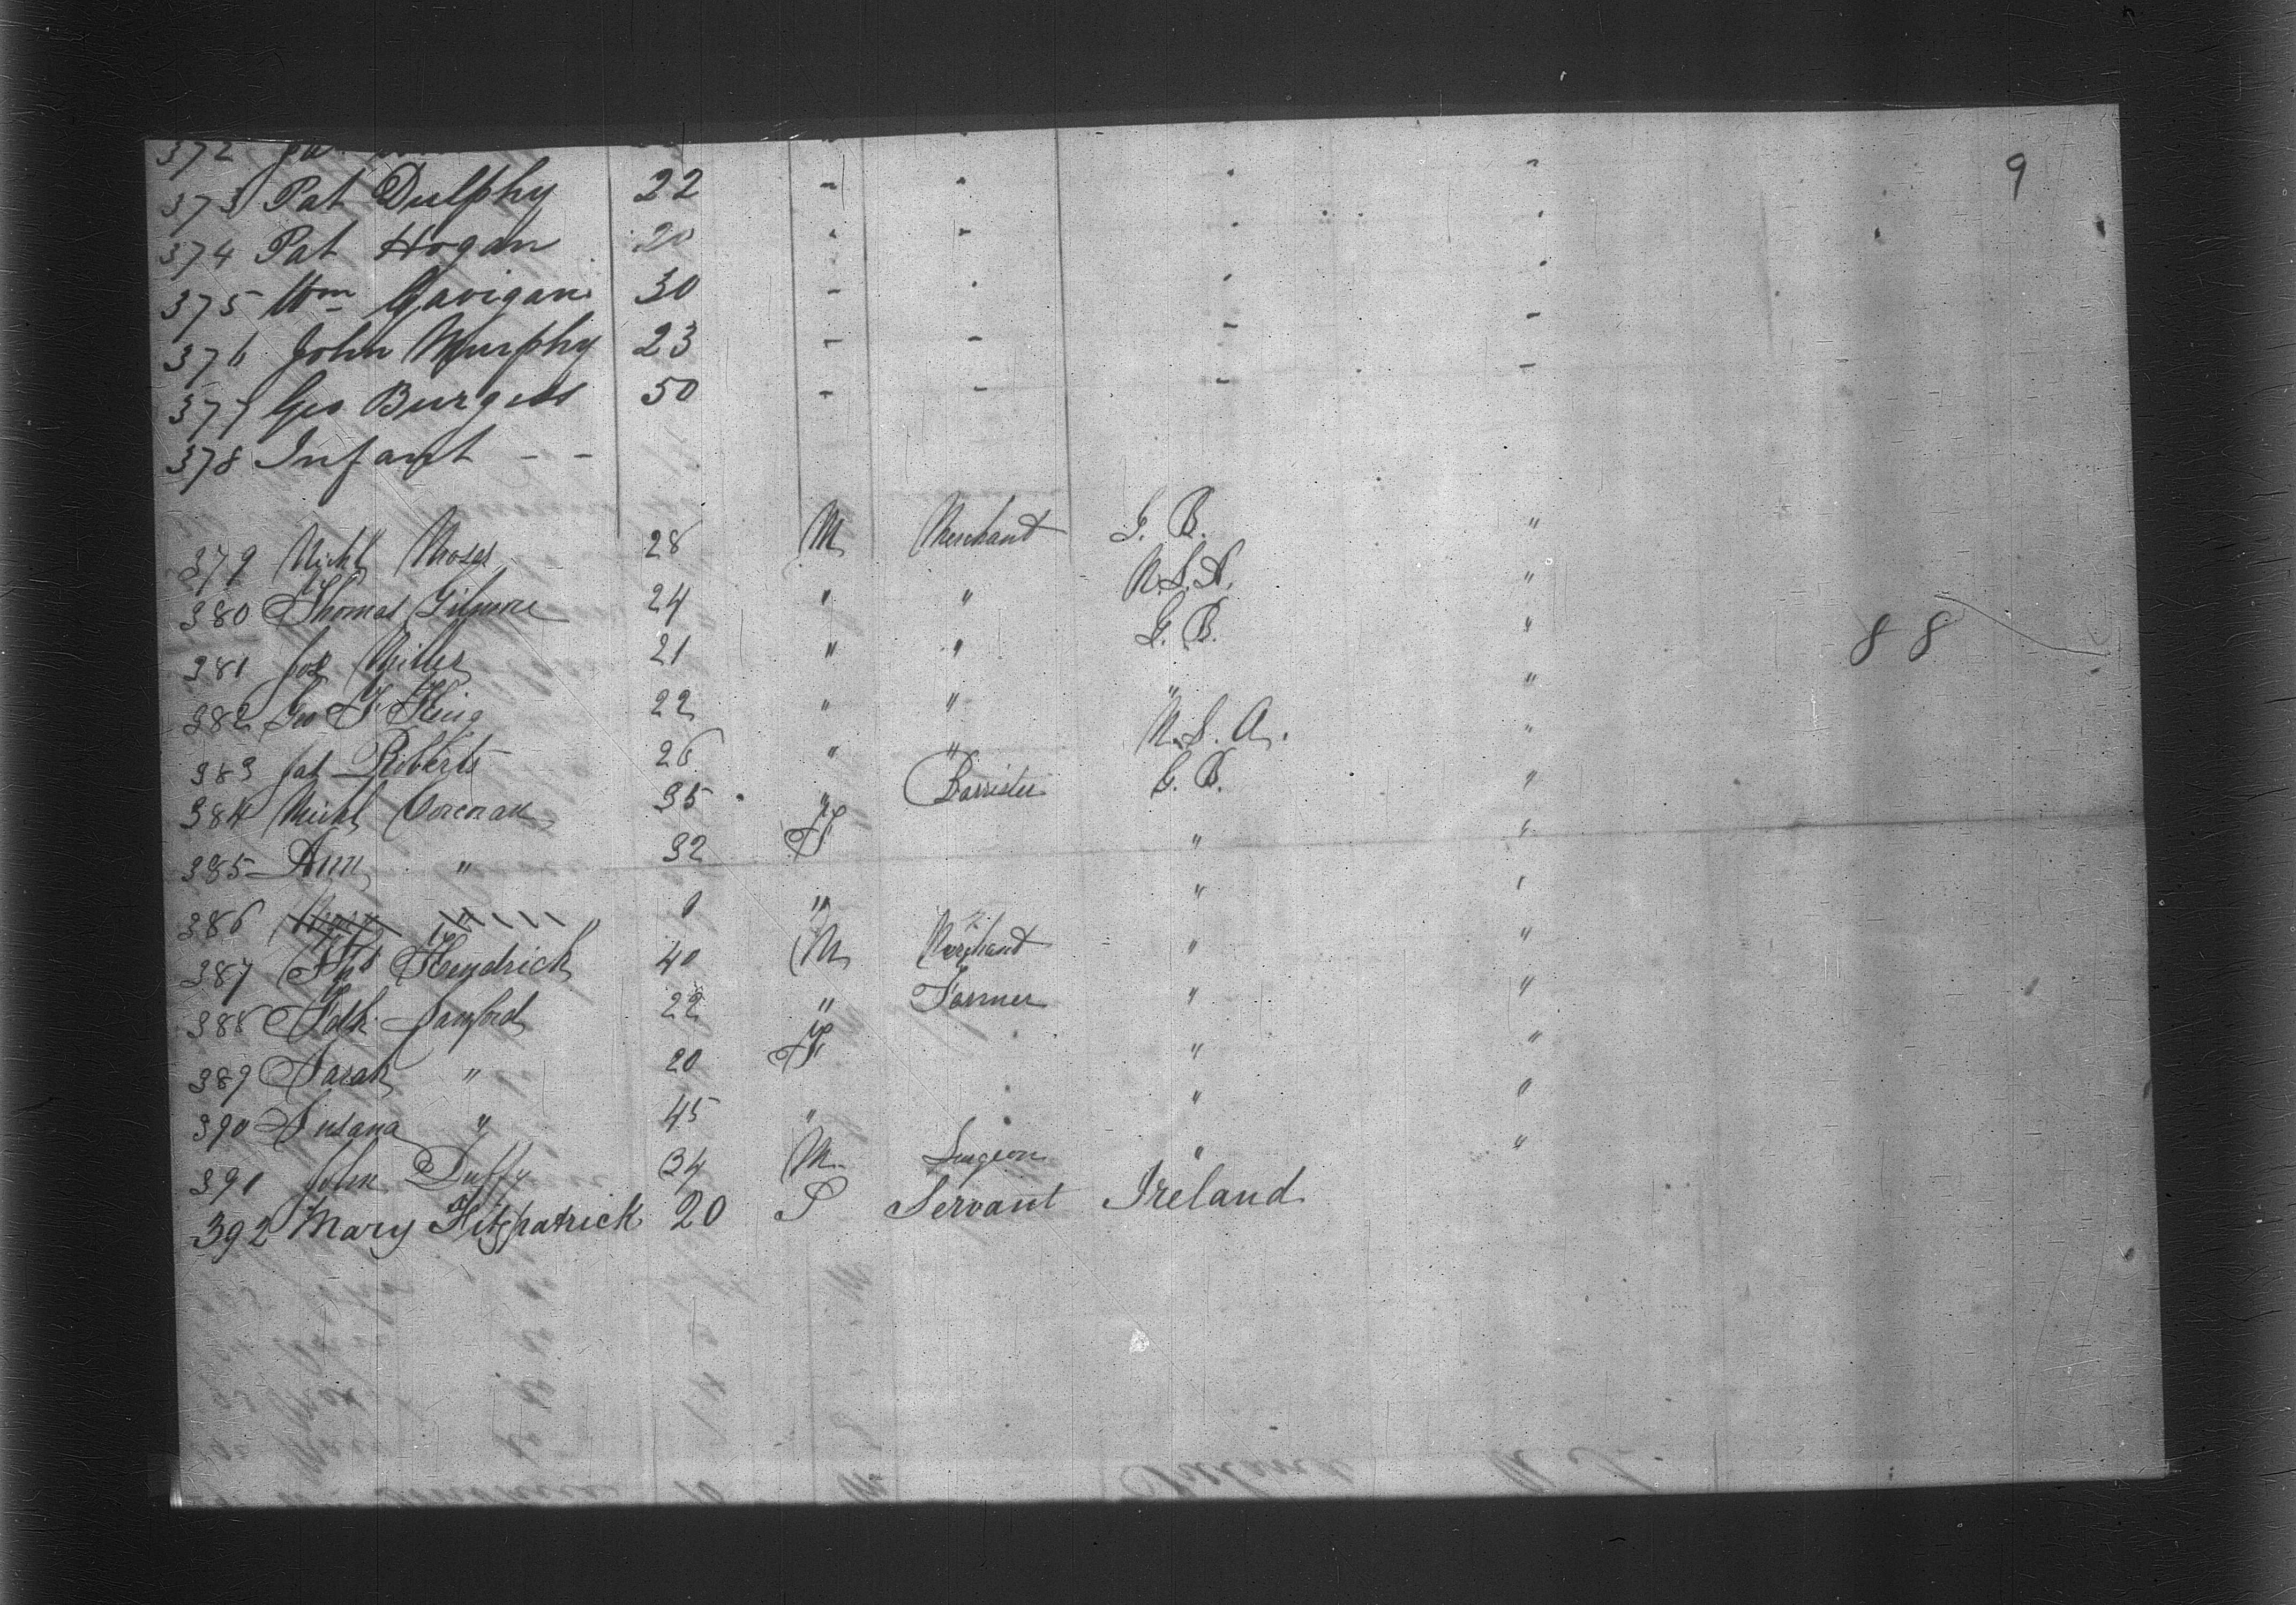 9
372
373 Pat Dulphy 22 " " " "
374 Pat Hogan 20 " " " "
375 Wm Gavigan 30 " " " "
376 John Murphy 23 " " " "
377 Geo Burgess 50 " " " "
378 Infant - -
379 Michl Moses 28 M Merchant G. B. "
380 Thomas Gilmore 24 " " U.S.A. "
381 Jos 21 " " G. B. "
382 Geo F King 22 " " " "
383 Jas Roberts 26 " " U.S.A. "
384 Michl Corcoran 35 " Barrister G. B. "
385 Ann " 32 F " "
386 " " " "
387 Thos Kendrick 40 M Merchant " "
388 22 " Farmer " "
389 Sarah " 20 F " "
390 Susana " 45 " " "
391 John Duffy 34 M Surgeon " "
392 Mary Fitzpatrick 20 Servant Ireland
88